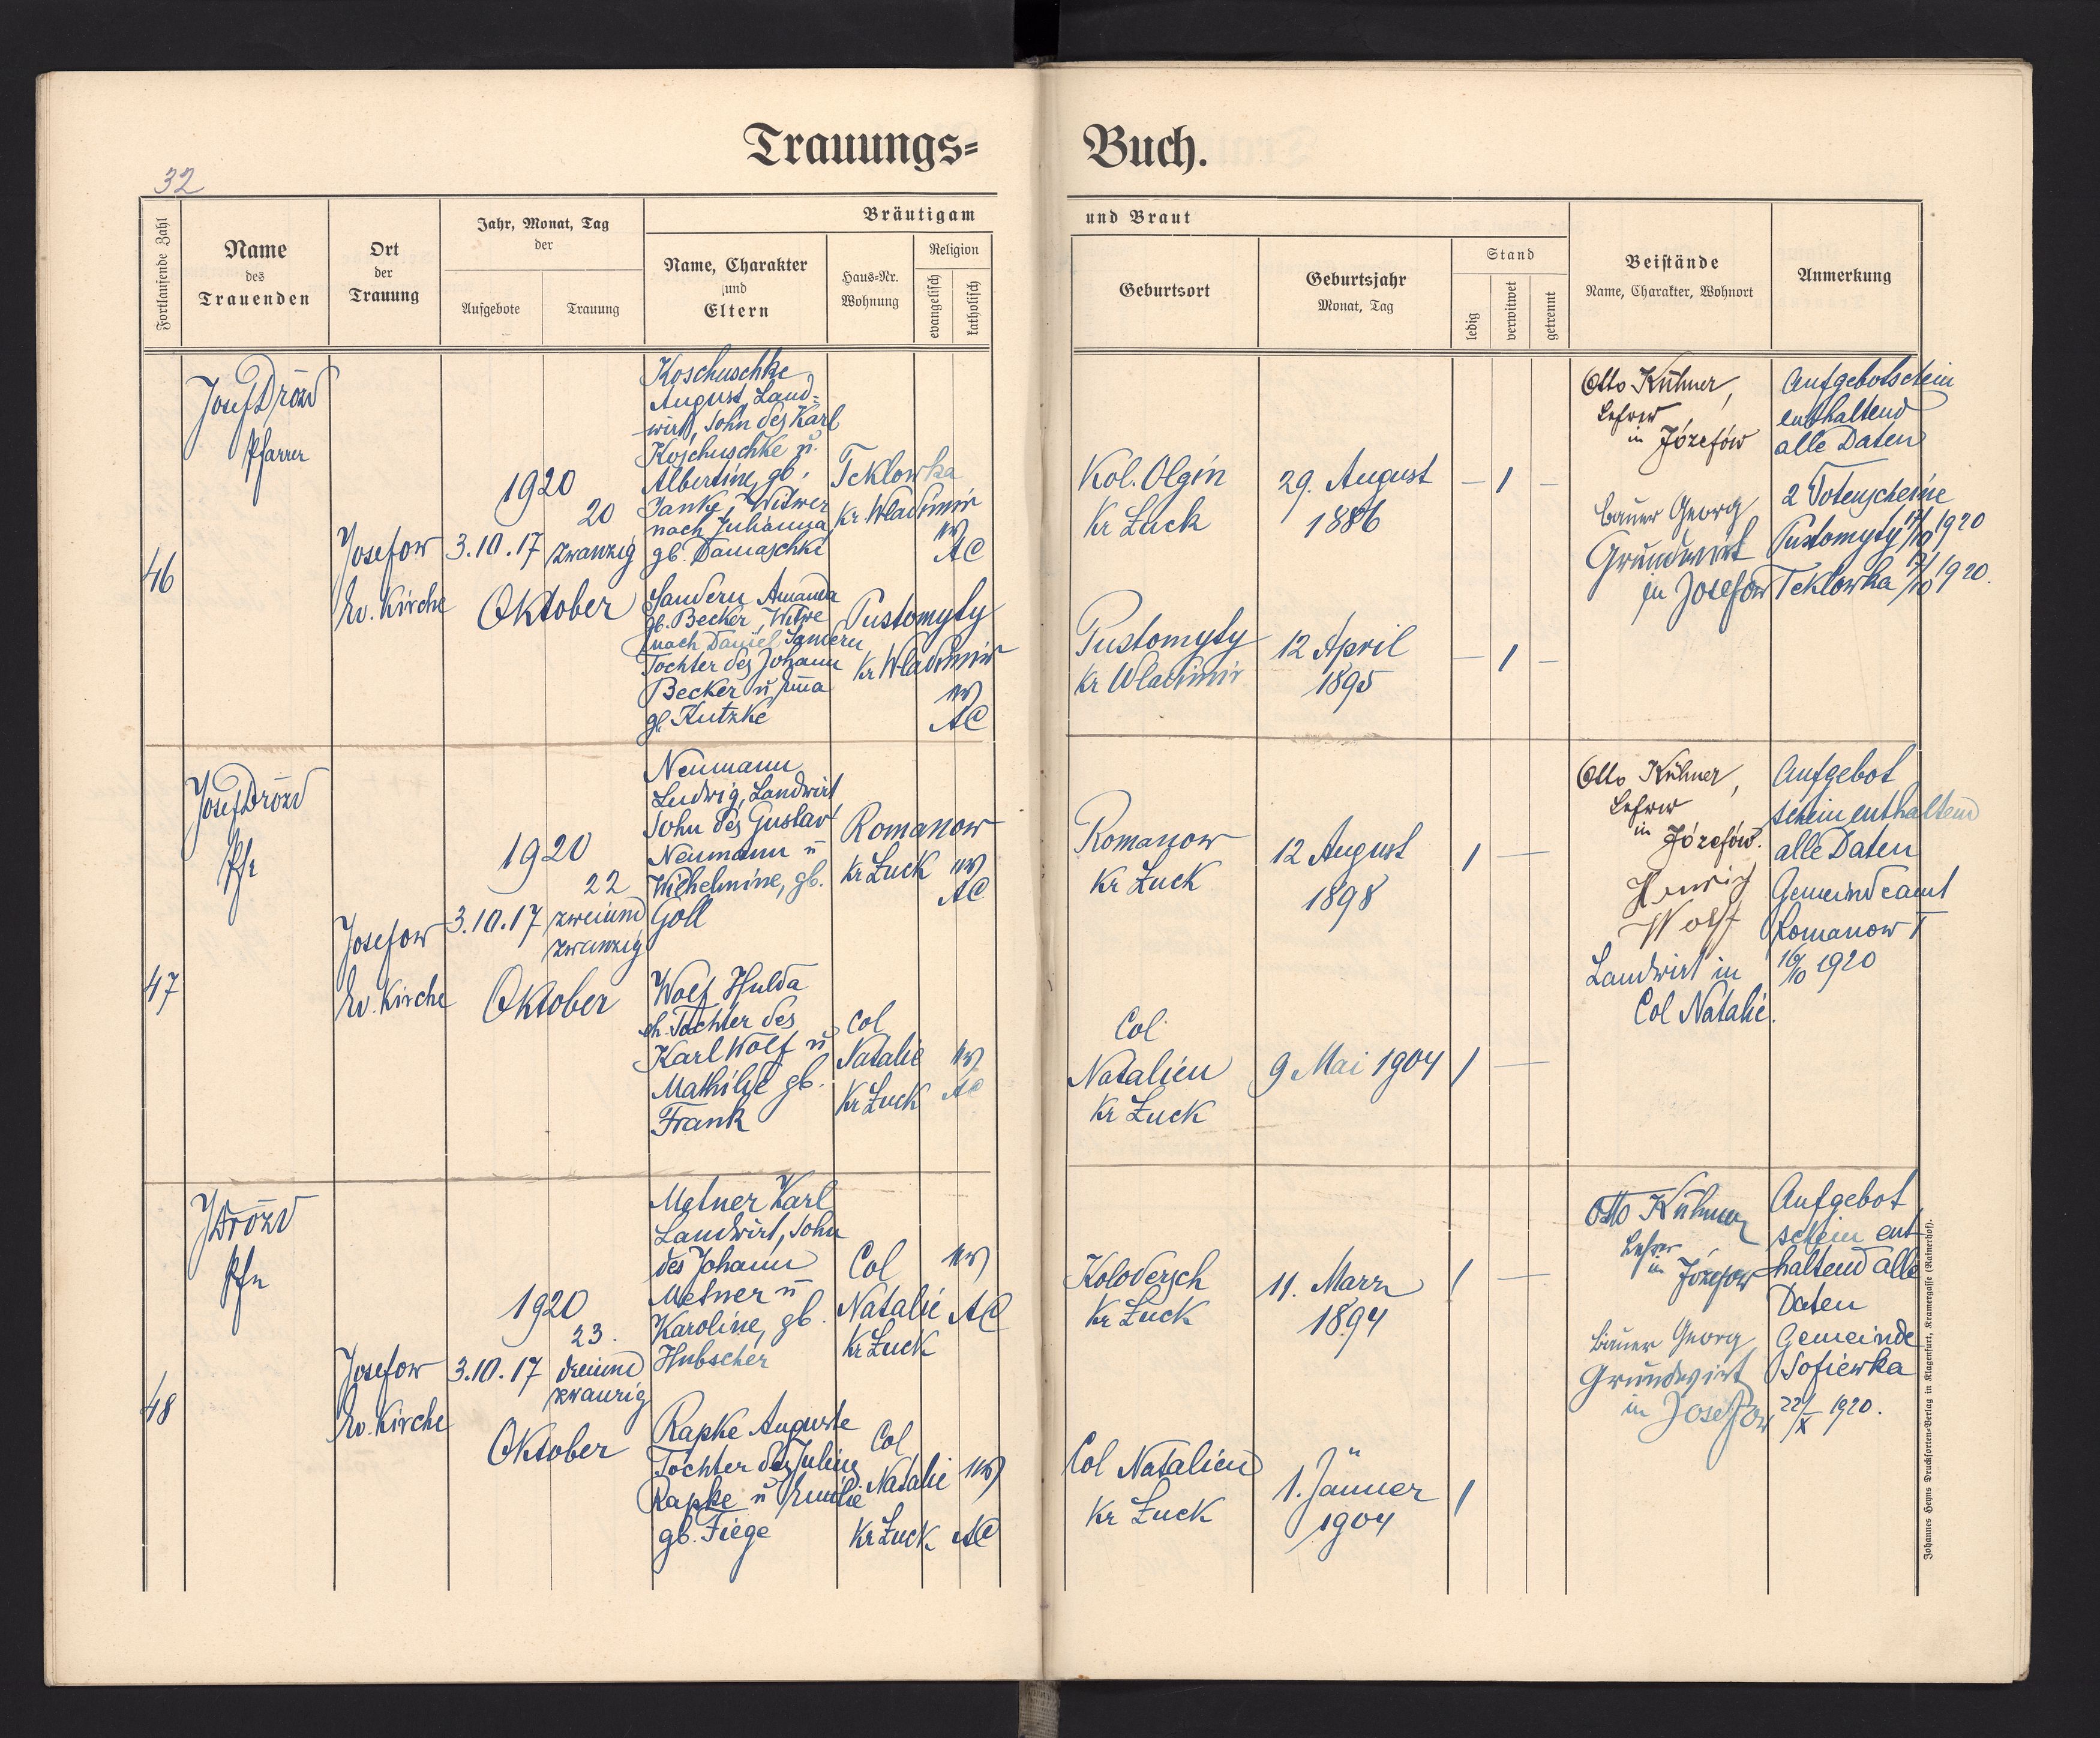 Trauungs=
Buch.
32
Fortlaufende Zahl
Name
des
Trauenden
Ort
der
Trauung
Jahr, Monat, Tag
der
Aufgebote
Trauung
Bräutigam
Name, Charakter
und
Eltern
Haus=Nr.
Wohnung
Religion
evangelisch
katholisch
und Braut
Geburtsort
Geburtsjahr
Monat, Tag
Stand
ledig
verwitwet
getrennt
Beistände
Name, Charakter, Wohnort
Anmerkung
46
Josef Drózd
Pfarrer
Josefow
Ev. Kirche
1920
3.10.17
20
zwanzig
Oktober
Koschuschke
August, Land=
wirt, Sohn des Karl
Koschuschke u.
Albertine, gb.
Janke, Witwer
nach Julianna
gb. Damaschke
Teklowka
Kr. Wladimir
AC
Sandern Amanda
gb. Becker, Witwe
nach Daniel Sandern
Tochter des Johann
Becker u
gb. Kutzke
Pustomyty
Kr Wladimir
AC
Kol. Olgin
Kr Łuck
29. August
1886
— 1 —
Pustomyty
Kr Wladimir
12 April
1895
— 1 —
Otto Kühner,
Lehrer
in Józefów
Bauer Georg
Grundwirt
in Josefow
Aufgebotschein
enthaltend
alle Daten
2 Totenscheine
Pustomyty 17/10 1920
Teklowka 17/10 1920.
47
Josef Drózd
Pfr
Josefow
Ev. Kirche
1920
3.10.17
22
zweiund
zwanzig
Oktober
Neumann
Ludwig, Landwirt
Sohn des Gustav
Neumann u
Wilhelmine, gb.
Goll
Romanow
Kr Łuck
AC
Wolf Hulda
eh. Tochter des
Karl Wolf u
Mathilde gb.
Frank
Col
Natalie
Kr Łuck
AC
Romanow
Kr Łuck
12 August
1898
1 —
Col
Natalien
Kr Łuck
9 Mai 1904
1 —
Otto Kühner,
Lehrer
in Józefów.
Wolf
Landwirt in
Col Natalie.
Aufgebot
schein enthaltend
alle Daten
Gemeindeamt
Romanow
16/10 1920
48
J Drózd
Pfr
Josefow
Ev. Kirche
1920
3.10.17
23.
dreiund
zwanzig
Oktober
Metner Karl
Landwirt, Sohn
des Johann
Metner u
Karoline, gb.
Hübscher
Col
Natalie
Kr Łuck
AC
Rapke Auguste
Tochter des Julius
Rapke u Emilie
gb. Fiege
Col
Natalie
Kr Łuck
AC
Kolodersch
Kr Łuck
11. März
1894
1 —
Col Natalien
Kr Łuck
1. Jänner
1904
1
Otto Kühner
Lehrer
in Józefow
Bauer Georg
Grundwirt
in Josefow
Aufgebot
schein ent
haltend alle
Daten
Gemeinde
Sofiewka
22/X 1920.
Johannes Heyns Drucksorten=Verlag in Klagenfurt, Kramergasse (Rainerhof).